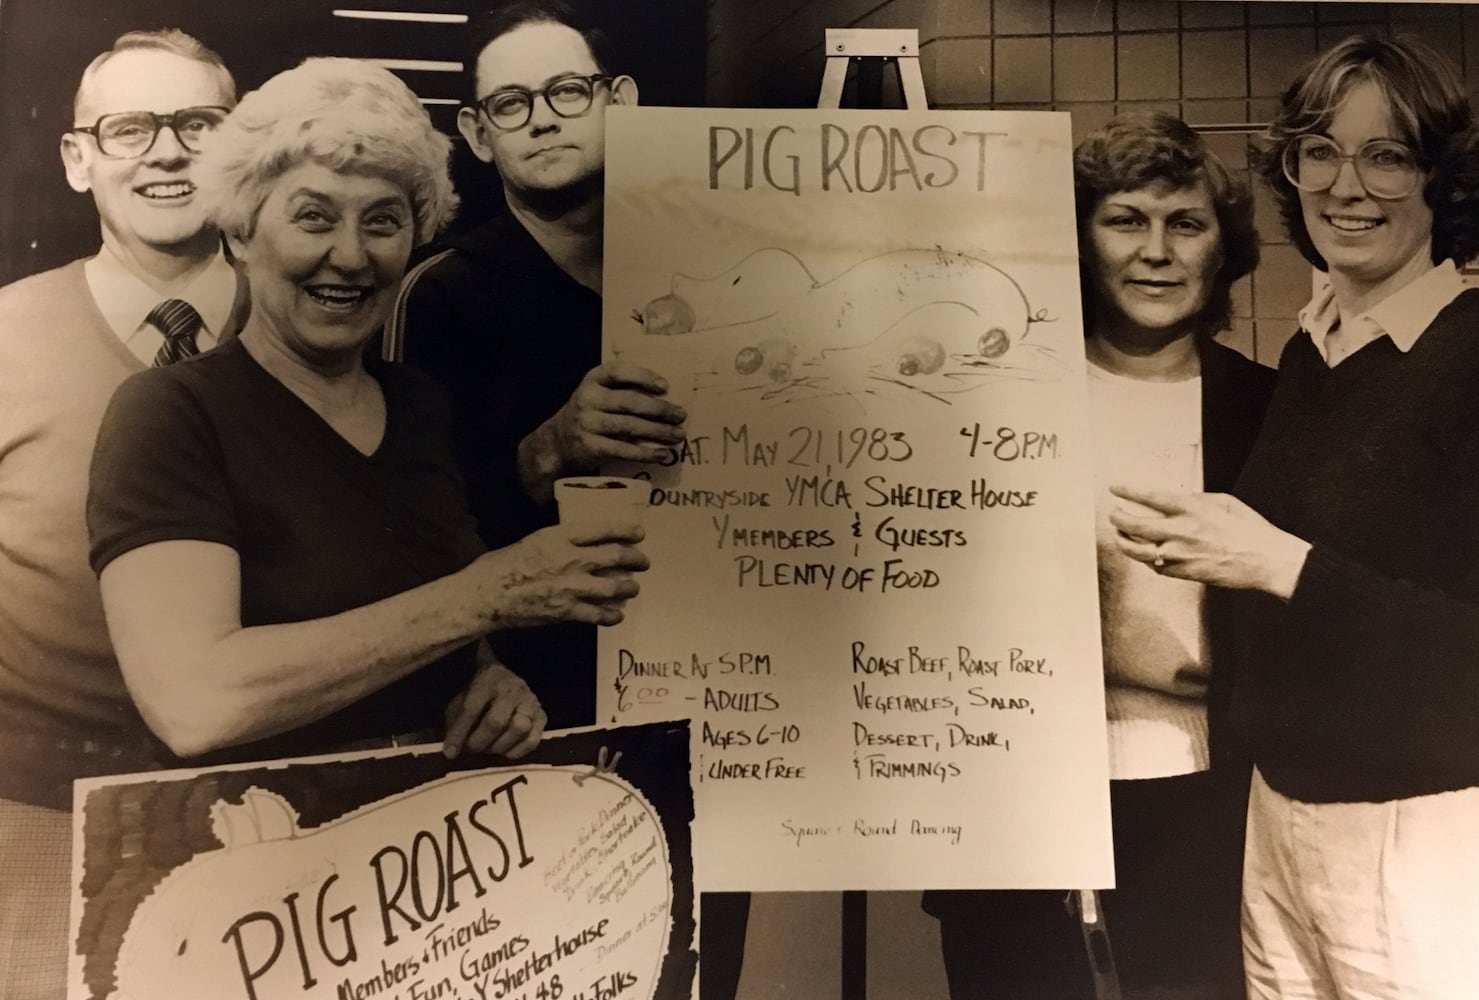 PIG ROAST
SAT. MAY 21, 1983 4-8 P.M.
COUNTRYSIDE YMCA SHELTER HOUSE
Y MEMBERS & GUESTS
PLENTY OF FOOD
DINNER AT 5 P.M.
$6.00 - ADULTS
AGES 6-10
UNDER FREE
ROAST BEEF, ROAST PORK,
VEGETABLES, SALAD,
DESSERT, DRINK,
& TRIMMINGS
Square & Round Dancing
PIG ROAST
Members & Friends
Fun, Games
Y Shelterhouse
4-8
Folks
Beef or Pork Dinner
Vegetables, Salad
Drink, Shortcake
Dancing, Round
Square
Ballroom
Dinner at 5:00